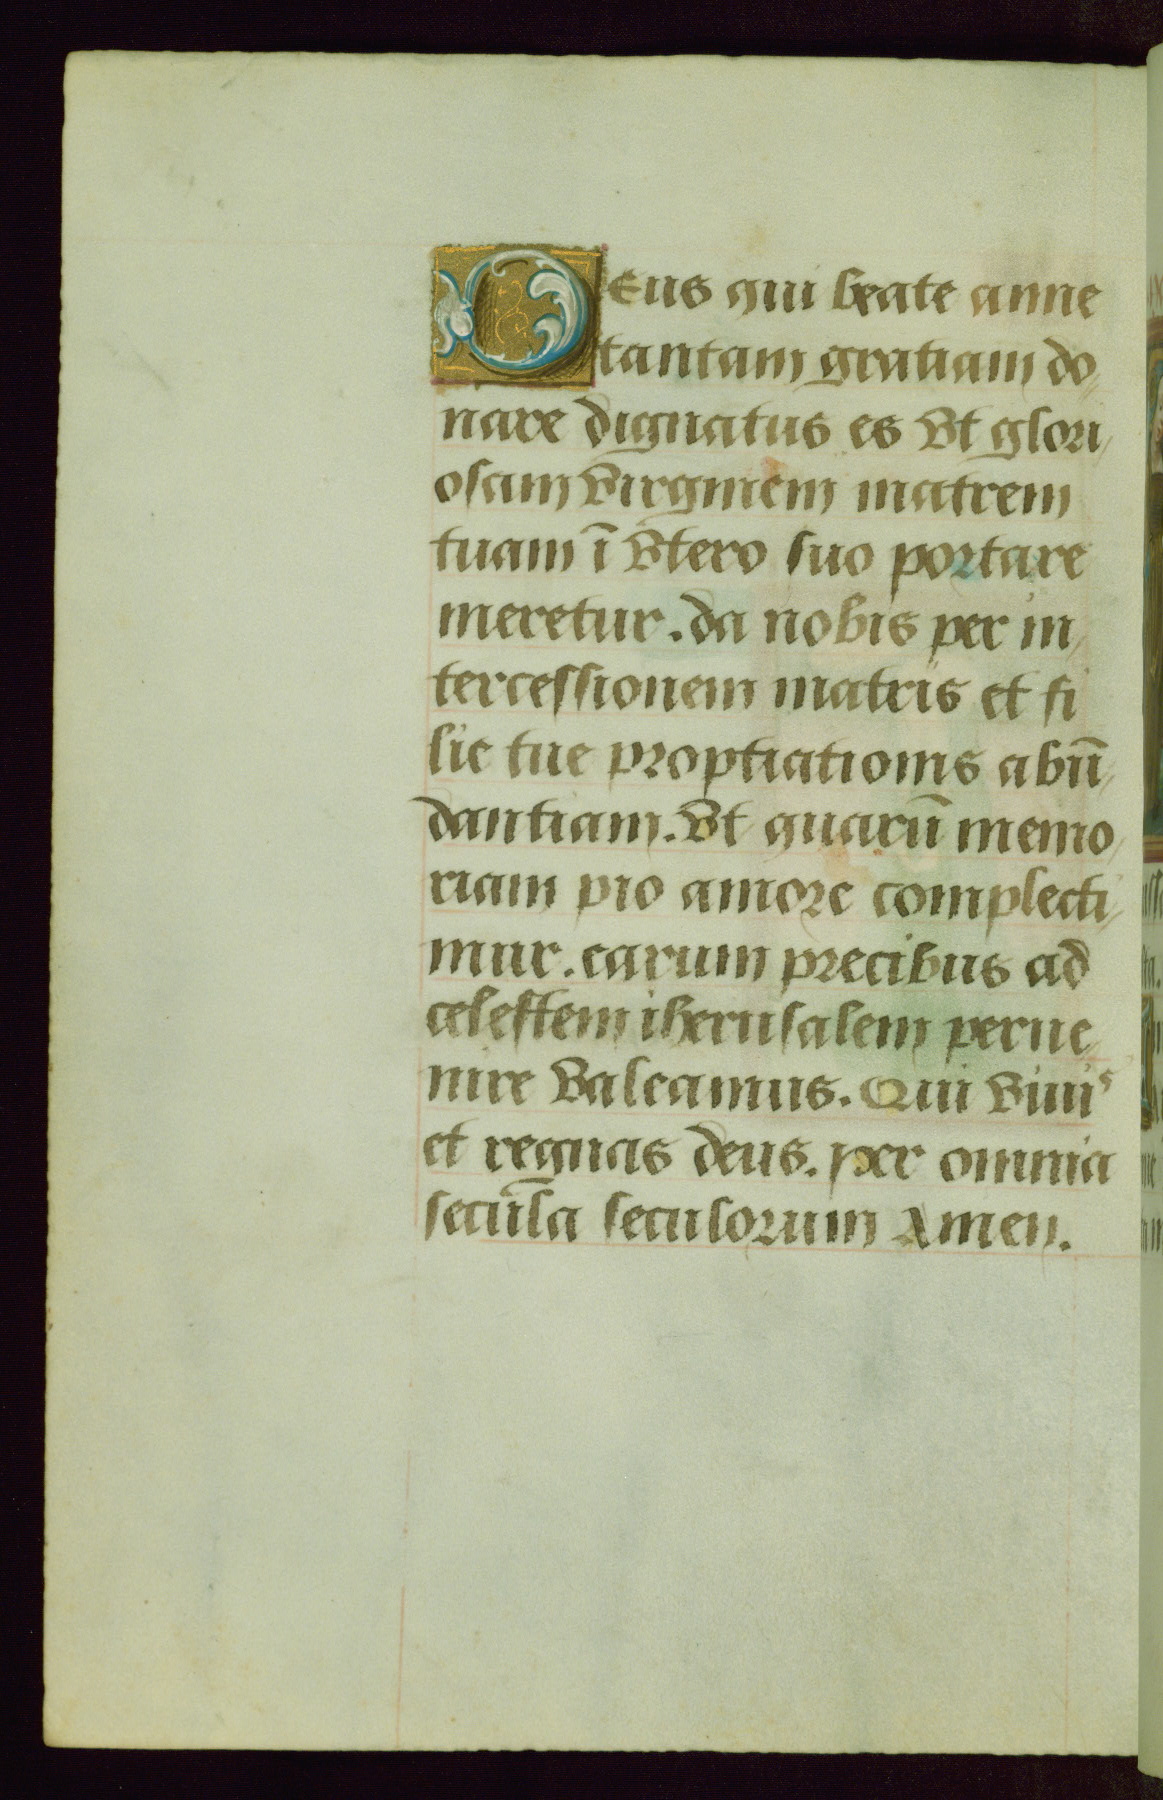 Deus qui beate anne
tantam gratiam do
nare dignatus es vt glori
osam virginem matrem
tuam ī vtero suo portare
meretur. da nobis per in
tercessionem matris et fi
lie tue proptiationis abūn
dantiam. vt quarū memo
riam pio amore complecti
mur. earum precibus ad
celestem iherusalem perue
nire valeamus. Qui viuis
et regnas deus. per omnia
secula seculorum Amen.